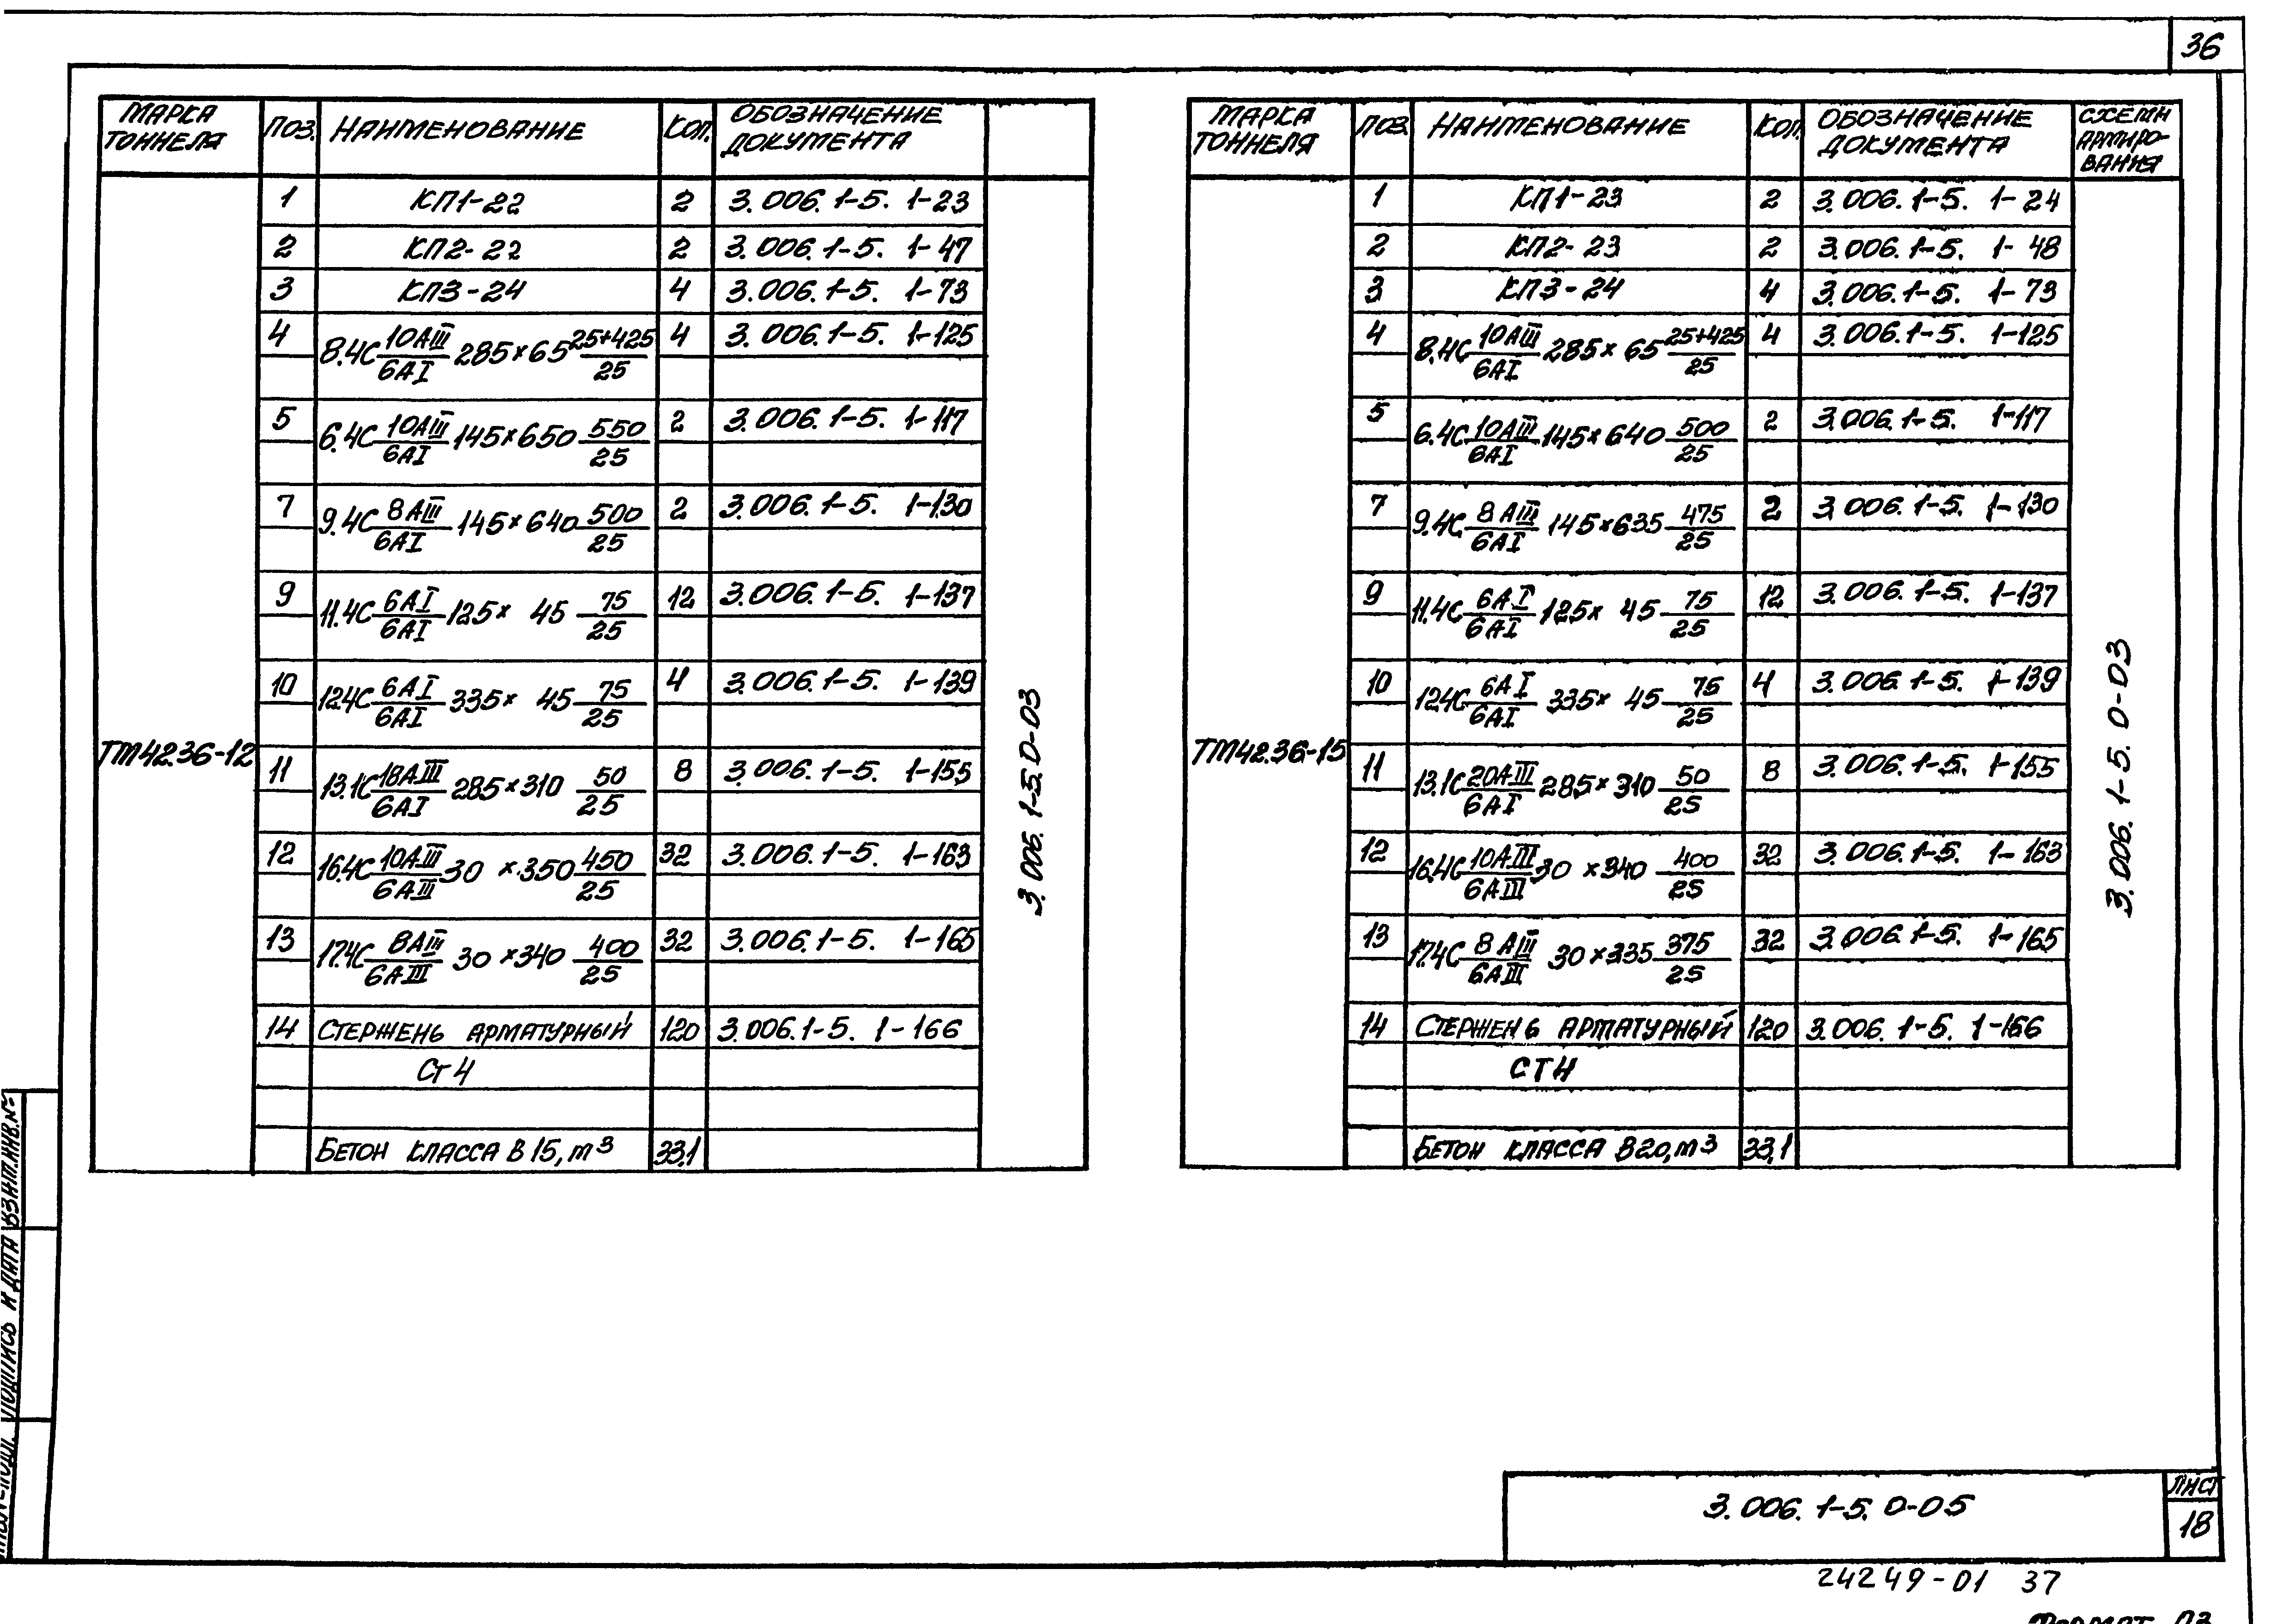 36
МАРКА ТОННЕЛЯ ПОЗ. НАИМЕНОВАНИЕ КОЛ. ОБОЗНАЧЕНИЕ ДОКУМЕНТА
ТМ42.36-12
1 КП1-22 2 3.006.1-5. 1-23
2 КП2-22 2 3.006.1-5. 1-47
3 КП3-24 4 3.006.1-5. 1-73
4 8.4С 10АIII/6АI 285×65 25+425/25 4 3.006.1-5. 1-125
5 6.4С 10АIII/6АI 145×650 550/25 2 3.006.1-5. 1-117
7 9.4С 8АIII/6АI 145×640 500/25 2 3.006.1-5. 1-130
9 11.4С 6АI/6АI 125× 45 75/25 12 3.006.1-5. 1-137
10 12.4С 6АI/6АI 335× 45 75/25 4 3.006.1-5. 1-139
11 13.1С 18АIII/6АI 285×310 50/25 8 3.006.1-5. 1-155
12 16.4С 10АIII/6АIII 30 ×350 450/25 32 3.006.1-5. 1-163
13 17.4С 8АIII/6АIII 30 ×340 400/25 32 3.006.1-5. 1-165
14 СТЕРЖЕНЬ АРМАТУРНЫЙ 120 3.006.1-5. 1-166
Ст 4
БЕТОН КЛАССА В 15, м³ 33,1
3.006.1-5.0-03
МАРКА ТОННЕЛЯ ПОЗ. НАИМЕНОВАНИЕ КОЛ. ОБОЗНАЧЕНИЕ ДОКУМЕНТА СХЕМА АРМИРО-ВАНИЯ
ТМ42.36-15
1 КП1-23 2 3.006.1-5. 1-24
2 КП2-23 2 3.006.1-5. 1-48
3 КП3-24 4 3.006.1-5. 1-73
4 8.4С 10АIII/6АI 285×65 25+425/25 4 3.006.1-5. 1-125
5 6.4С 10АIII/6АI 145×640 500/25 2 3.006.1-5. 1-117
7 9.4С 8АIII/6АI 145×635 475/25 2 3.006.1-5. 1-130
9 11.4С 6АI/6АI 125× 45 75/25 12 3.006.1-5. 1-137
10 12.4С 6АI/6АI 335× 45 75/25 4 3.006.1-5. 1-139
11 13.1С 20АIII/6АI 285×310 50/25 8 3.006.1-5. 1-155
12 16.4С 10АIII/6АIII 30 ×340 400/25 32 3.006.1-5. 1-163
13 17.4С 8АIII/6АIII 30×335 375/25 32 3.006.1-5. 1-165
14 СТЕРЖЕНЬ АРМАТУРНЫЙ 120 3.006.1-5. 1-166
СТ4
БЕТОН КЛАССА В20, м³ 33,1
3.006.1-5.0-03
ВЗАМ.ИНВ.№
ПОДПИСЬ И ДАТА
3.006.1-5.0-05
ЛИСТ
18
24249-01 37
Формат А3